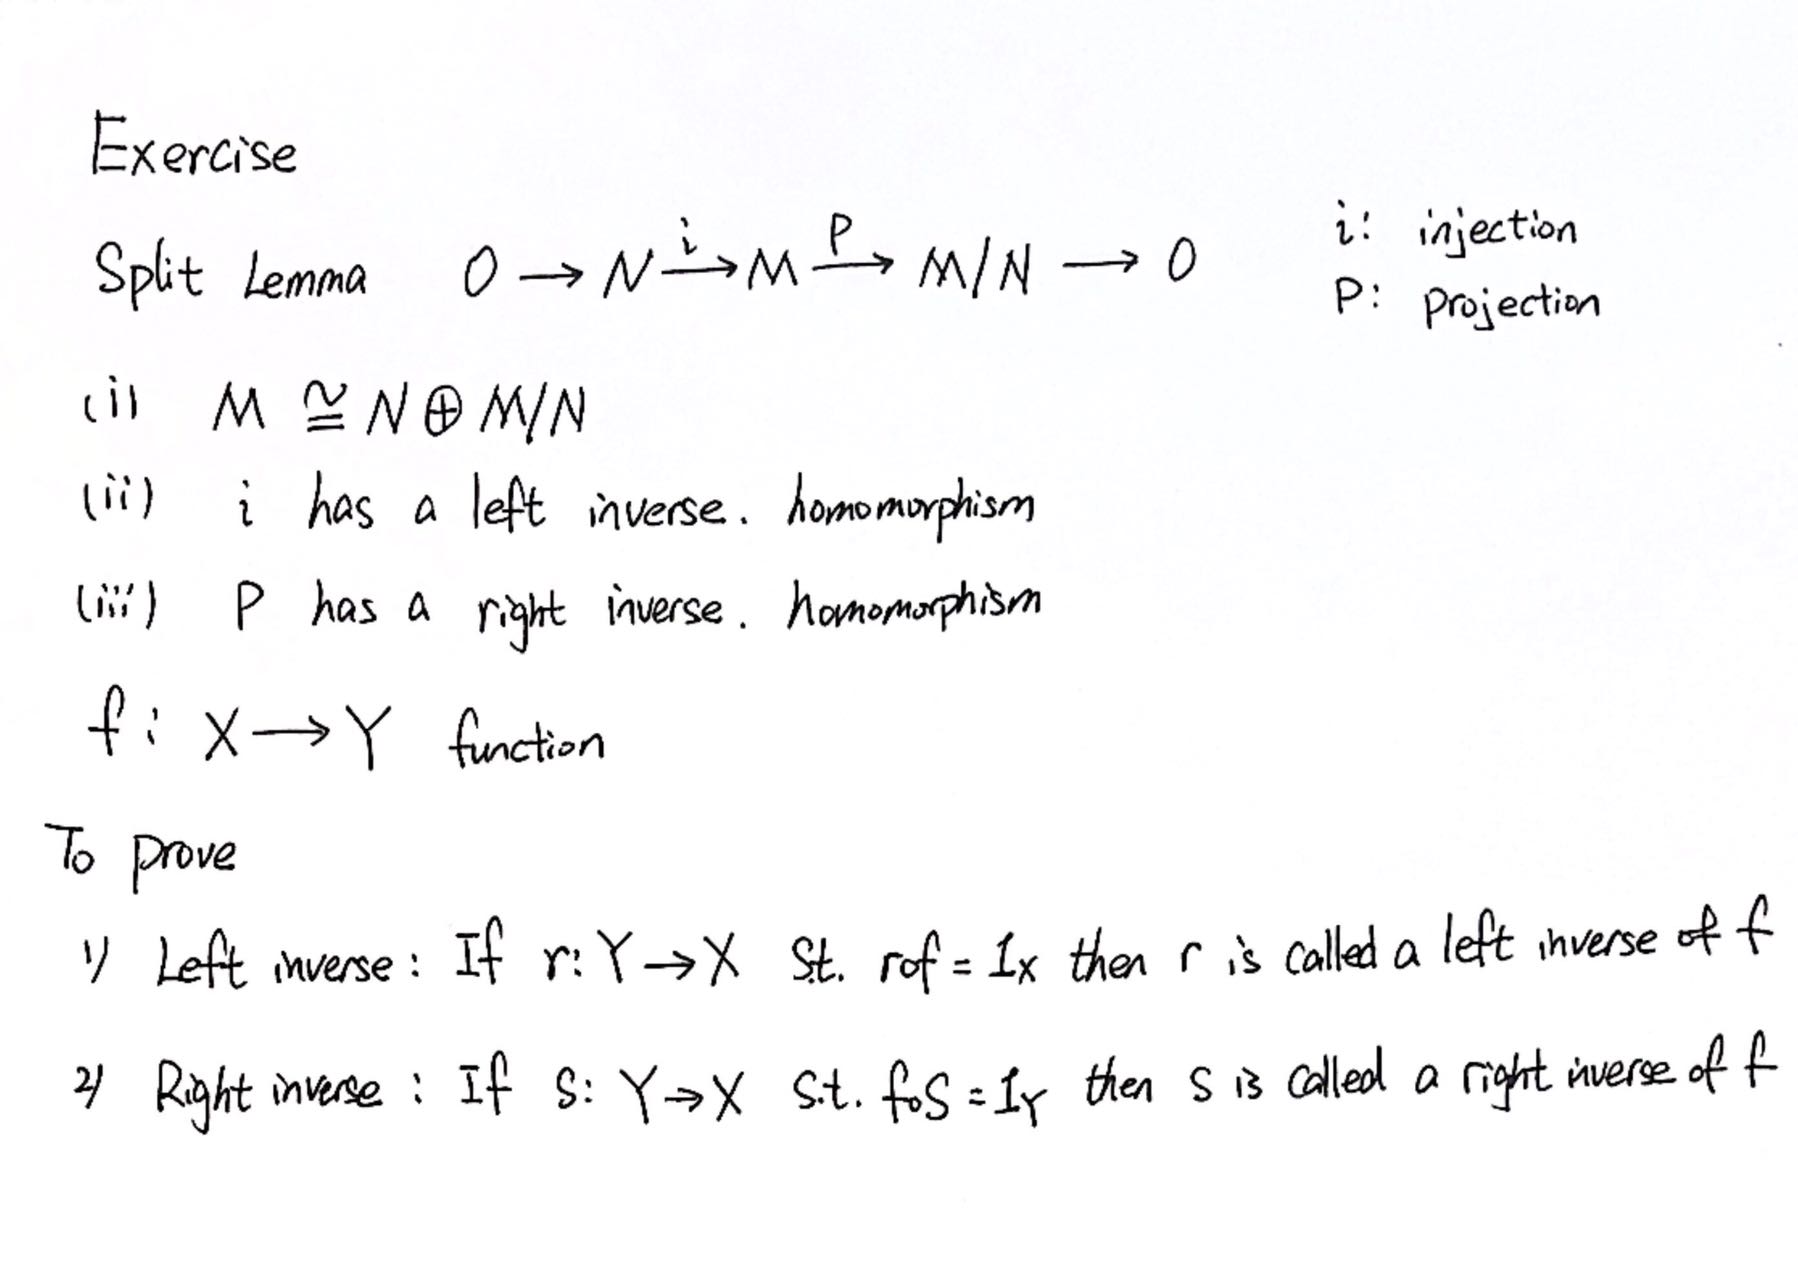 Exercise
Split Lemma 0 → N →i M →P M/N → 0 i: injection
P: Projection
(i) M ≅ N ⊕ M/N
(ii) i has a left inverse. homomorphism
(iii) P has a right inverse. homomorphism
f: X → Y function
To prove
1) Left inverse: If r: Y → X S.t. r∘f = 1_X then r is called a left inverse of f
2) Right inverse: If S: Y → X S.t. f∘S = 1_Y then S is called a right inverse of f